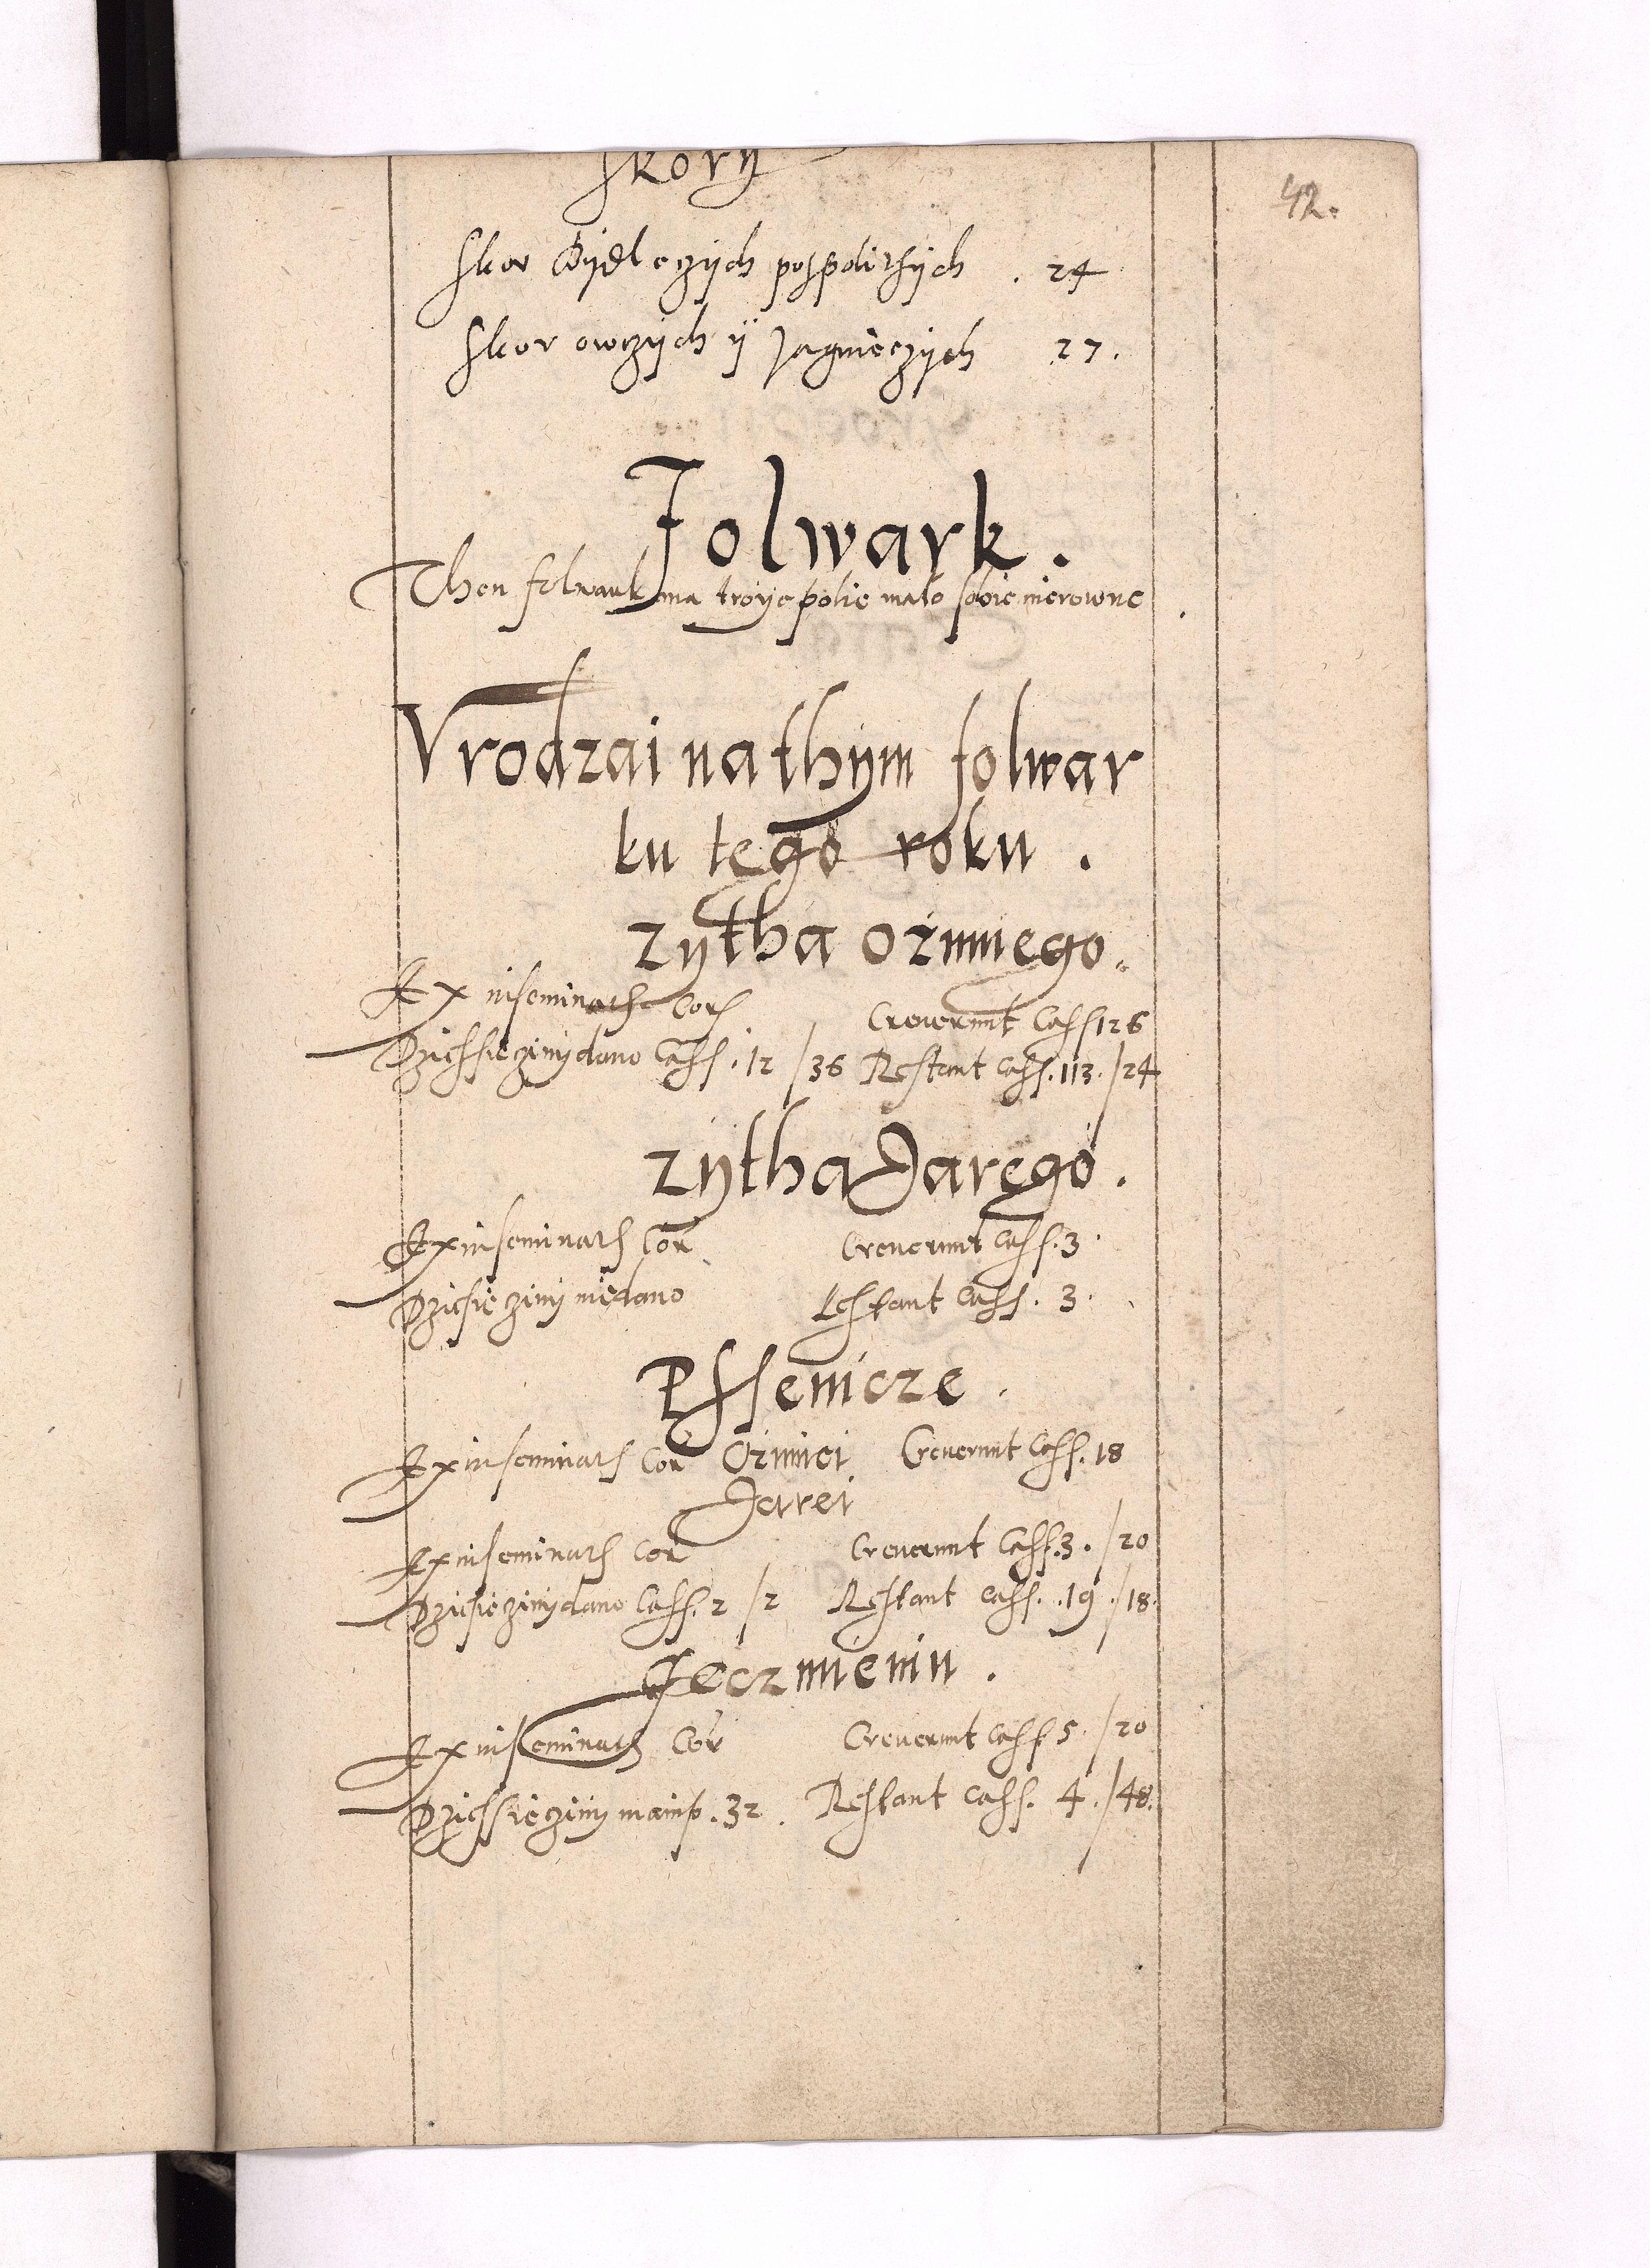 42.
Skory
Skor Bydleczych pospolithych . 24
Skor owczych ÿ Jagnieczych 27.
Folwark.
Then folwark ma troye polie mało sobie nierowne .
Vrodzai na thym folwar
ku tego roku .
zytha ozimiego.
Ex inseminatis Cor Creuerunt Cass 126
Dziessiecziny dano Cass. 12 /36 Restant Cass. 113. /24
zytha Jarego.
Ex inseminatis Cor Creuerunt Cass. 3.
Dziesiecziny niedano Restant Cass. 3.
Pssenicze .
Ex inseminatis Cor Ozimiei Creuerunt Cass. 18
Jarei
Ex inseminatis Cor Creuerunt Cass. 3. /20
Dziesiecziny dano Cass. 2 /2 Restant Cass. 19. /18.
Jeczmieniu .
Ex inseminatis Cor Creuerunt Cass 5. /20
Dziessiecziny manip. 32. Restant Cass. 4. /48.